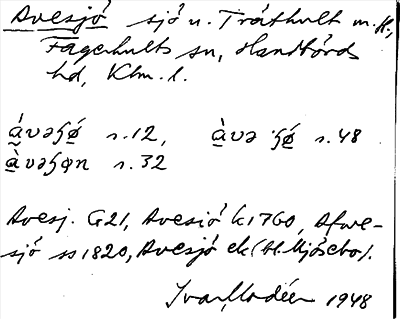 Avesjö sjö u. Tråthult m.fl.,
Fagerhults sn, Handbörds
hd, Klm. l.
s.12, s.48
s.32
Avesj. G21, Avesiö k1760, Afwe-
sjö ss1820, Avesjö ek (bl. Mjösebo).
Ivar Modéer 1948